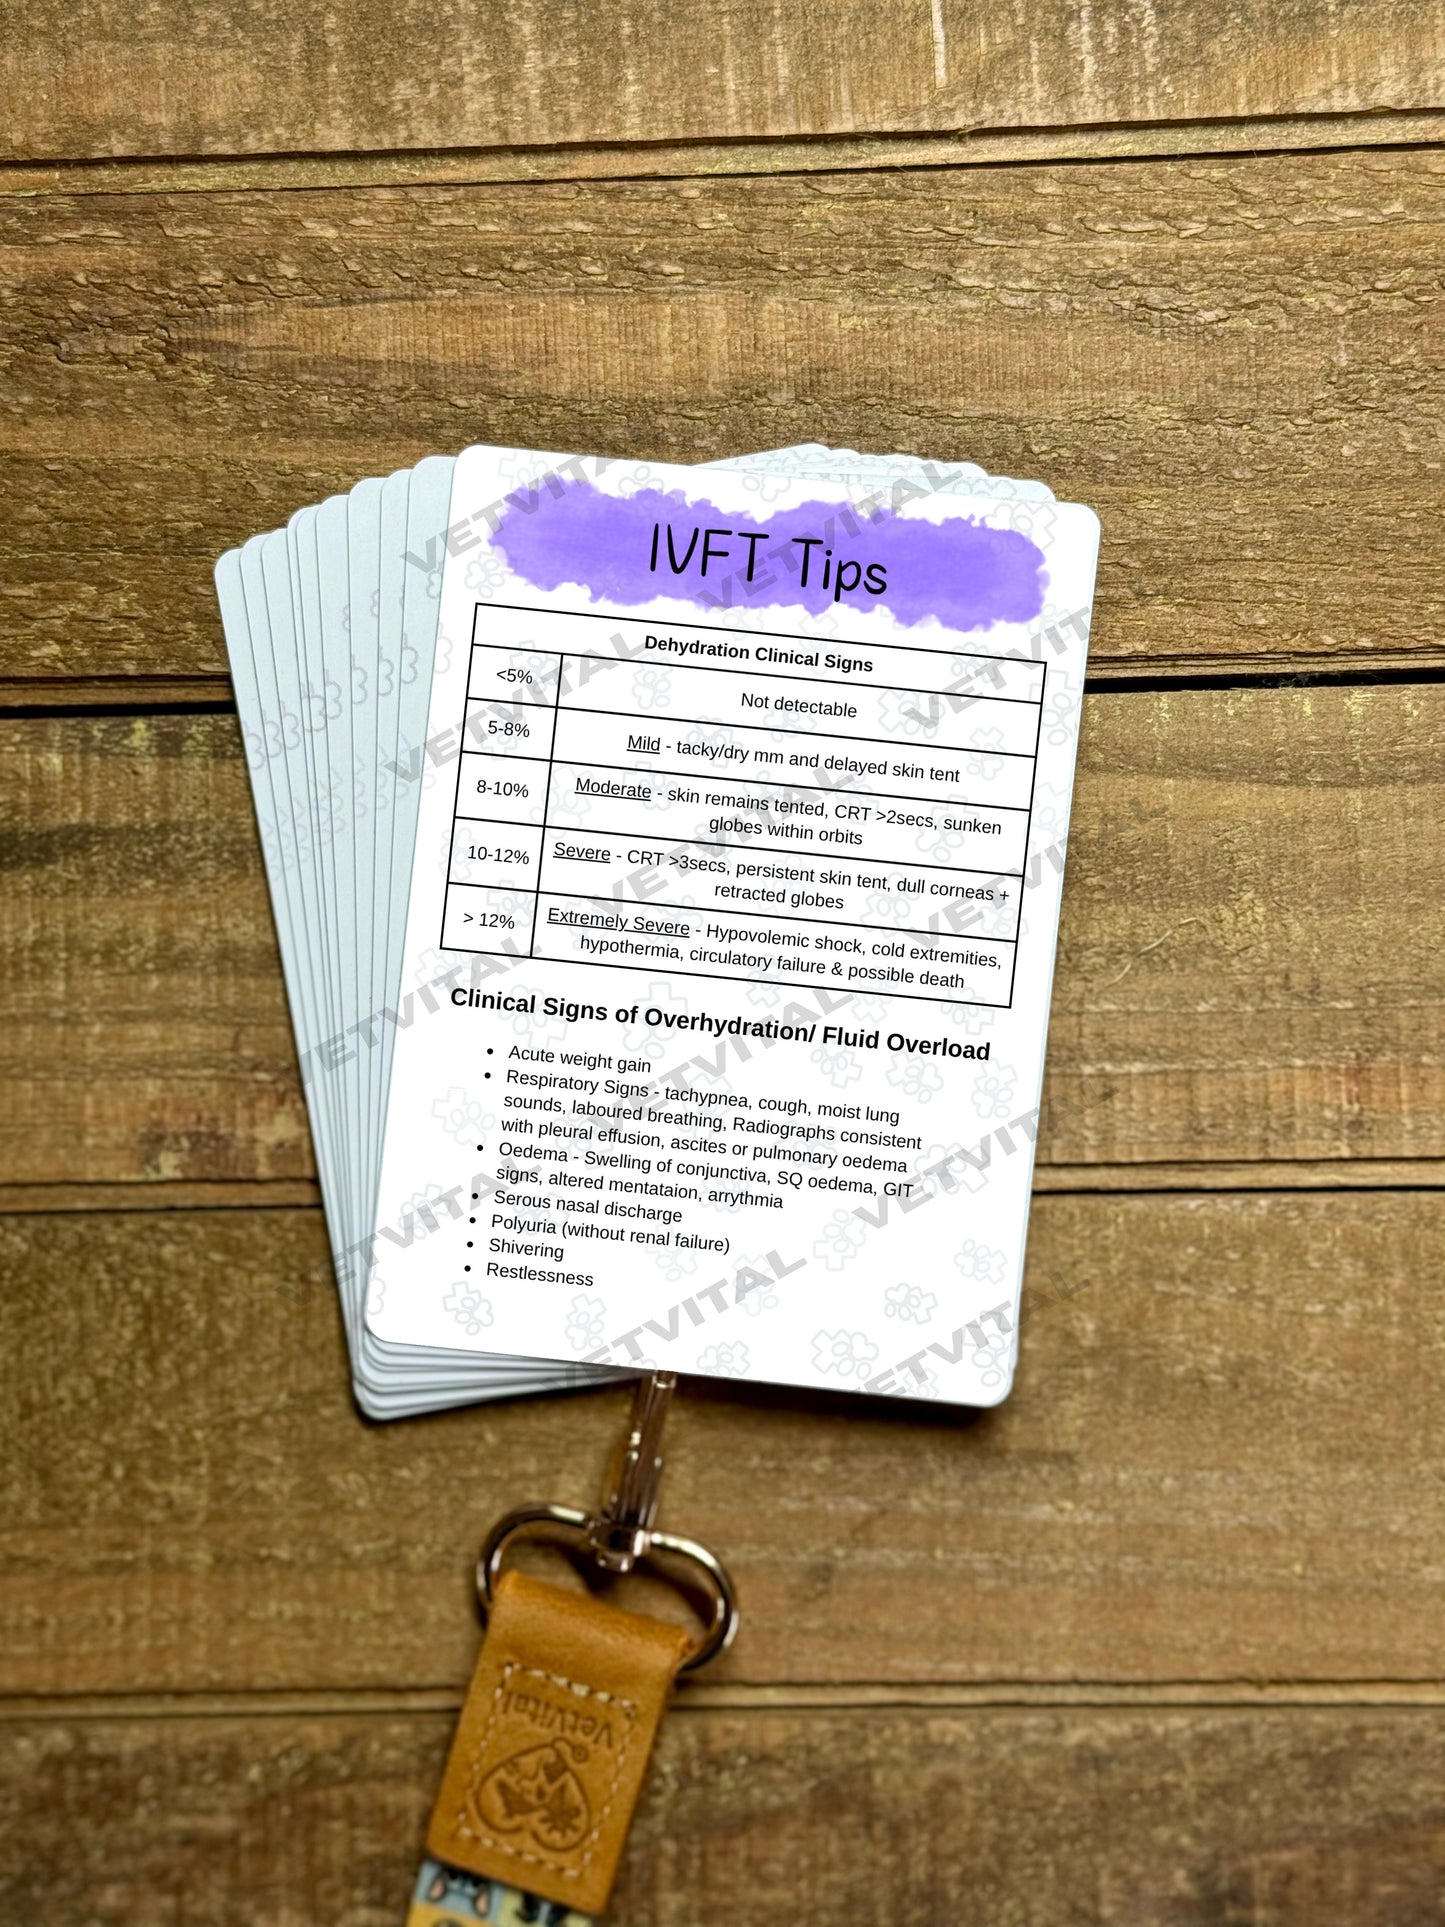 IVFT Tips
Dehydration Clinical Signs
<5%
Not detectable
5-8%
Mild - tacky/dry mm and delayed skin tent
8-10%
Moderate - skin remains tented, CRT >2secs, sunken
globes within orbits
10-12%
Severe - CRT >3secs, persistent skin tent, dull corneas +
retracted globes
> 12%
Extremely Severe - Hypovolemic shock, cold extremities,
hypothermia, circulatory failure & possible death
Clinical Signs of Overhydration/ Fluid Overload
• Acute weight gain
• Respiratory Signs - tachypnea, cough, moist lung
sounds, laboured breathing, Radiographs consistent
with pleural effusion, ascites or pulmonary oedema
• Oedema - Swelling of conjunctiva, SQ oedema, GIT
signs, altered mentataion, arrythmia
• Serous nasal discharge
• Polyuria (without renal failure)
• Shivering
• Restlessness
VETVITAL
VETVITAL
VETVITAL
VETVITAL
VETVITAL
VETVITAL
VETVITAL
VETVITAL
VETVITAL
VETVITAL
VETVITAL
VETVITAL
VETVITAL
VETVITAL
VetVital